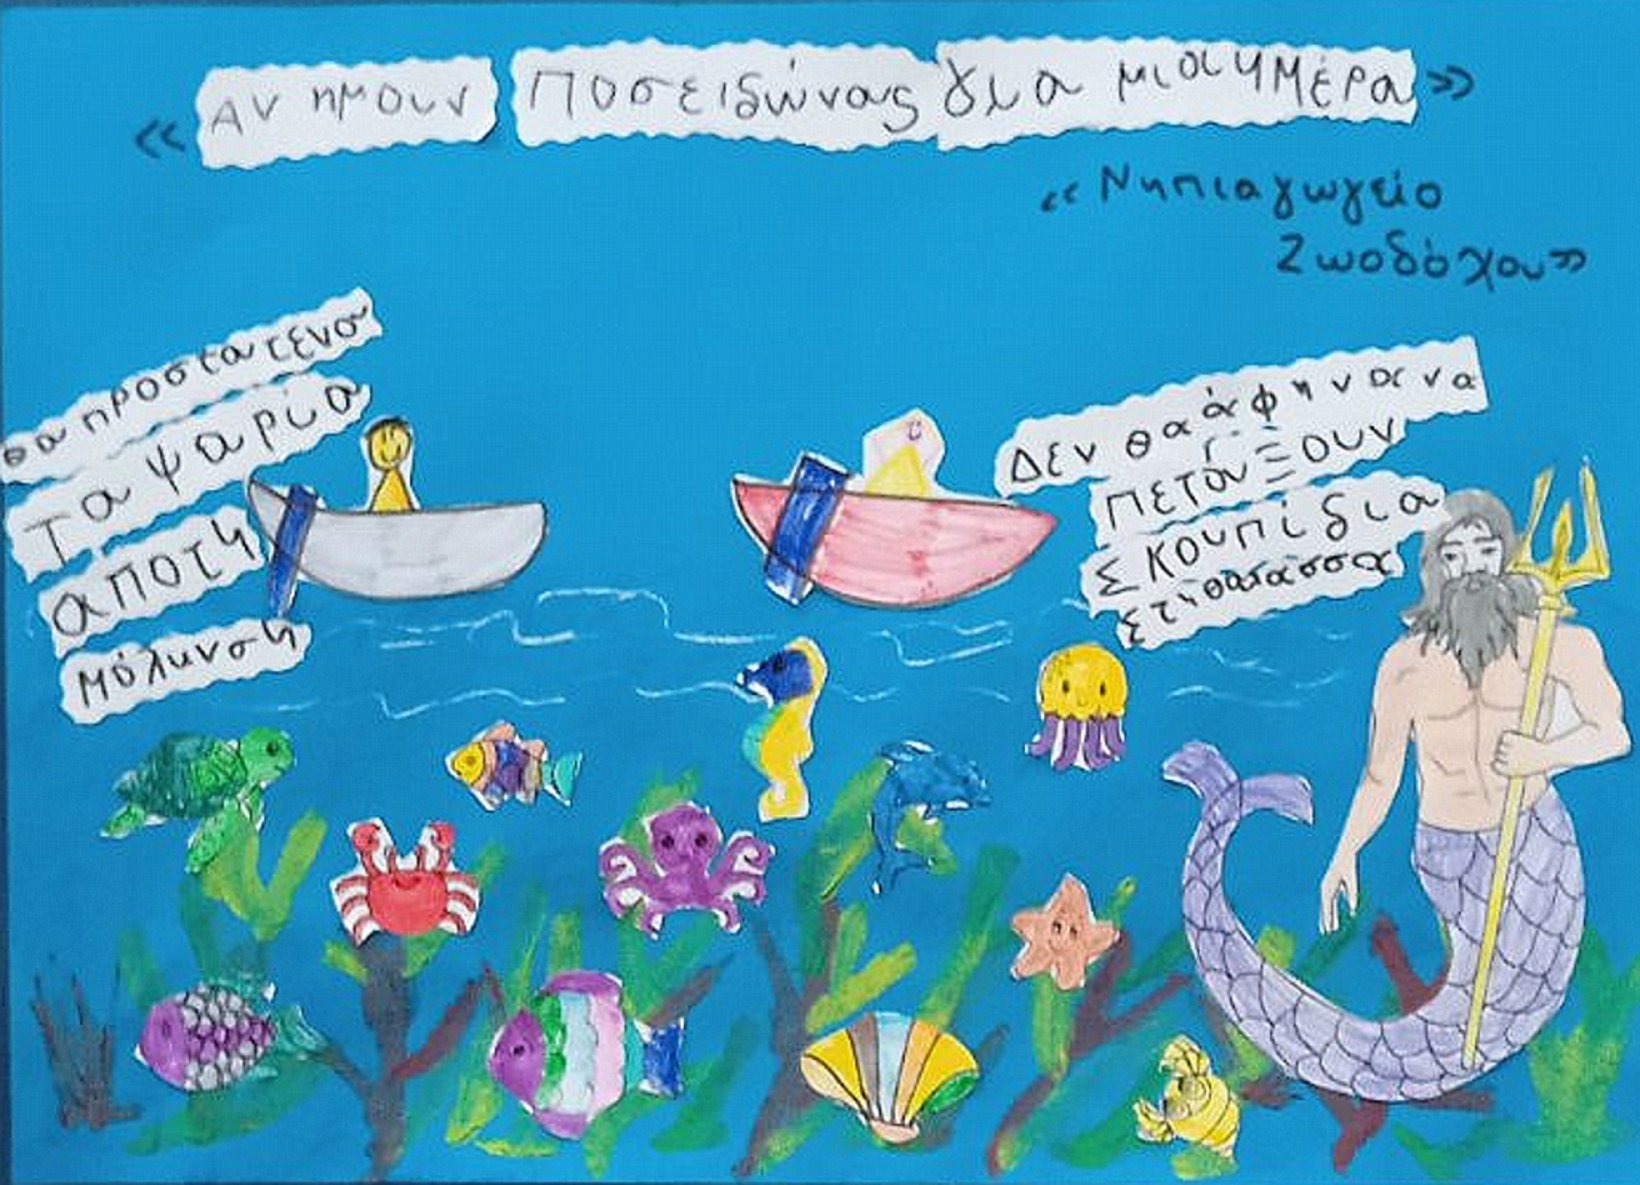 « αν ημουν Ποσειδώνας για μια ημέρα »
« Νηπιαγωγείο
Ζωοδόχου »
θα προστατενα
Τα ψαρια
αποτη
Μόλυνση
Δεν θα άφηνα να
πετάξουν
Σκουπίδια
Στη θαλασσα